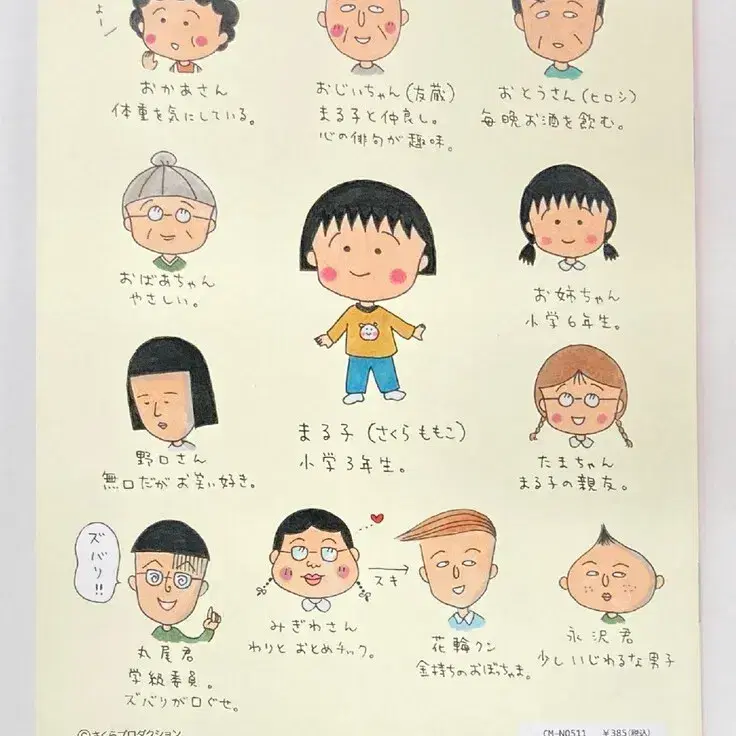 よー
おかあさん
体重を気にしている。
おじいちゃん(友蔵)
まる子と仲良し。
心の俳句が趣味。
おとうさん(ヒロシ)
毎晩お酒を飲む。
おばあちゃん
やさしい。
お姉ちゃん
小学6年生。
まる子(さくらももこ)
小学3年生。
野口さん
無口だがお笑い好き。
たまちゃん
まる子の親友。
ズバリ!!
丸尾君
学級委員。
ズバリが口ぐせ。
みぎわさん
わりとおとめチック。
スキ
花輪クン
金持ちのおぼっちゃま。
永沢君
少しいじわるな男子
©さくらプロダクション
CM-N0511 ¥385(税込)